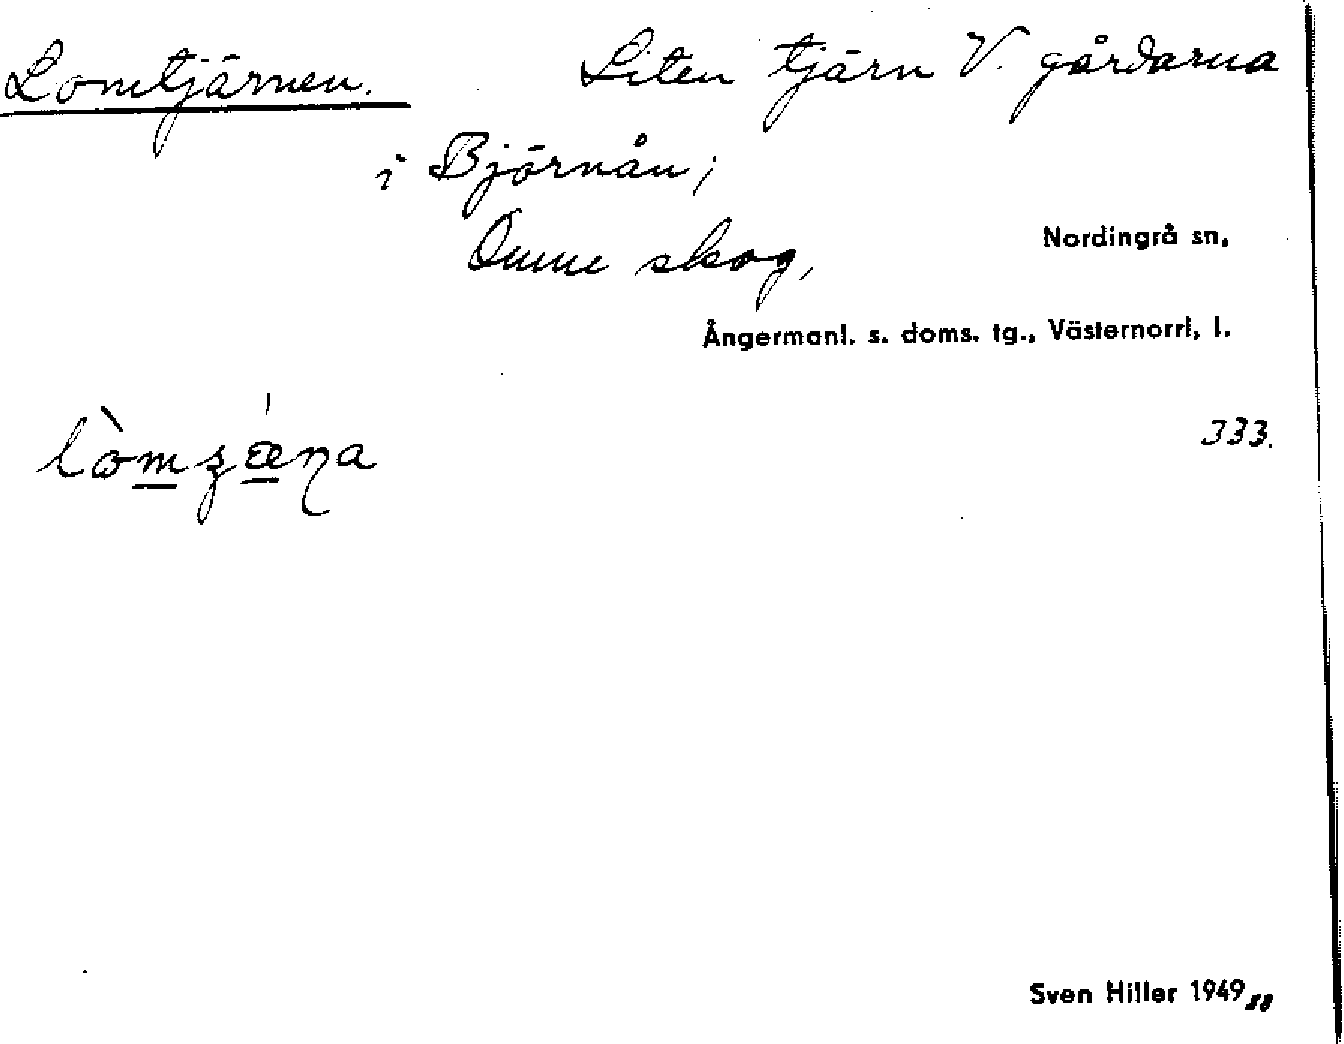 Lomtjärnen. Liten tjärn V. gårdarna
i Björnån;
Omne skog,
Nordingrå sn,
Ångermanl. s. doms. tg., Västernorrl, l.
333.
Sven Hiller 1949